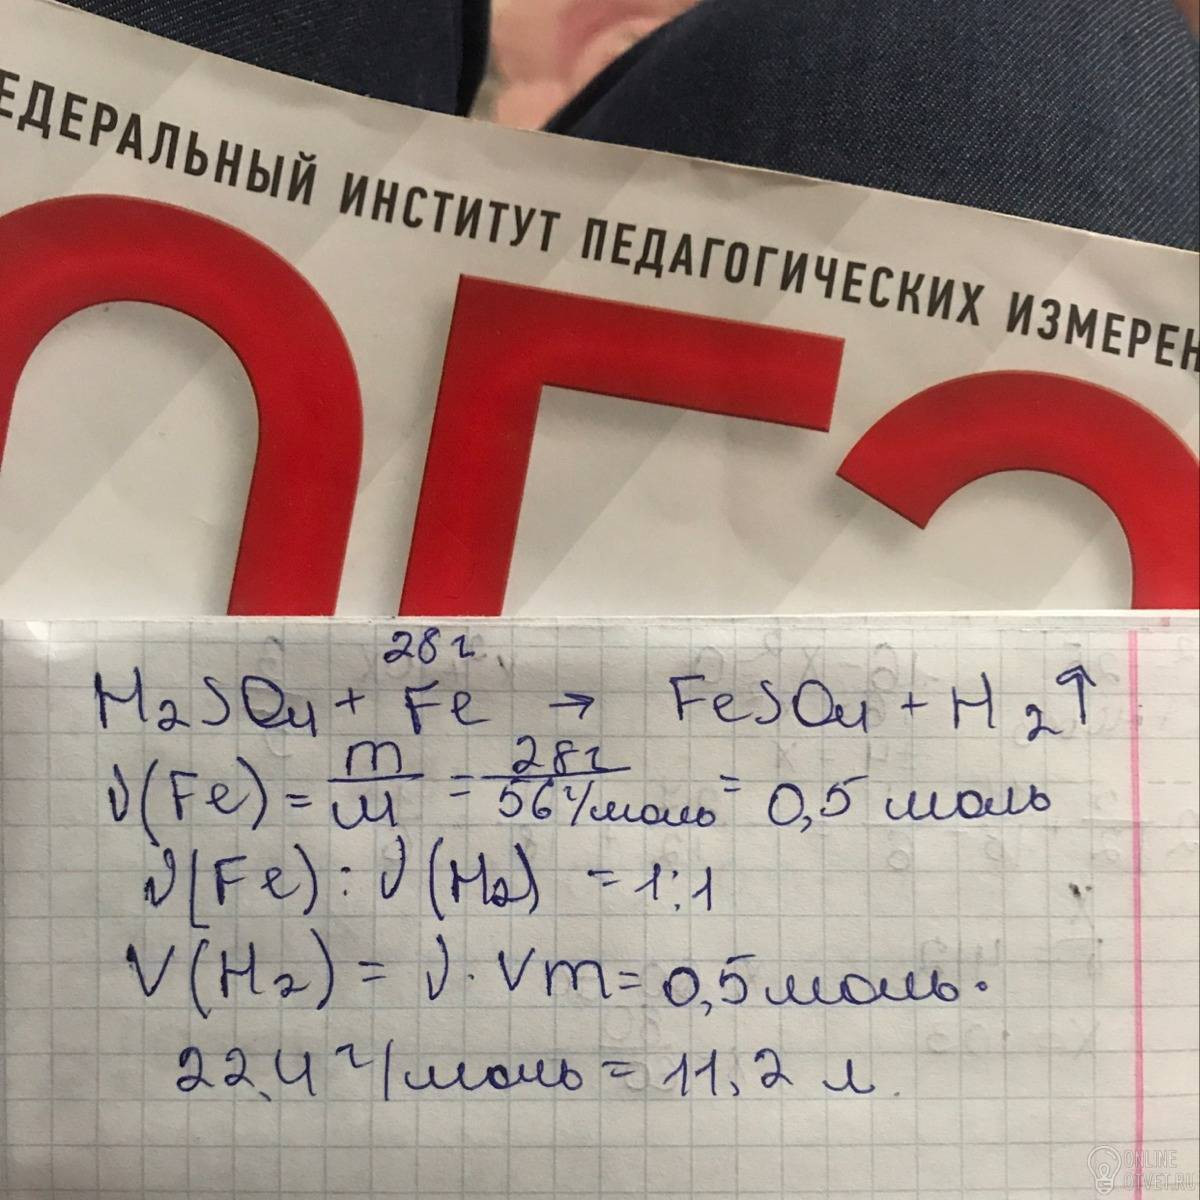 ЕДЕРАЛЬНЫЙ ИНСТИТУТ ПЕДАГОГИЧЕСКИХ ИЗМЕРЕН
ОГЭ
28 г
H₂SO₄ + Fe → FeSO₄ + H₂↑
ν(Fe) = m/M = 28г/56 г/моль = 0,5 моль
ν(Fe) : ν(H₂) = 1:1
V(H₂) = ν · Vm = 0,5 моль ·
22,4 г/моль = 11,2 л
ONLINE
OTVET.RU